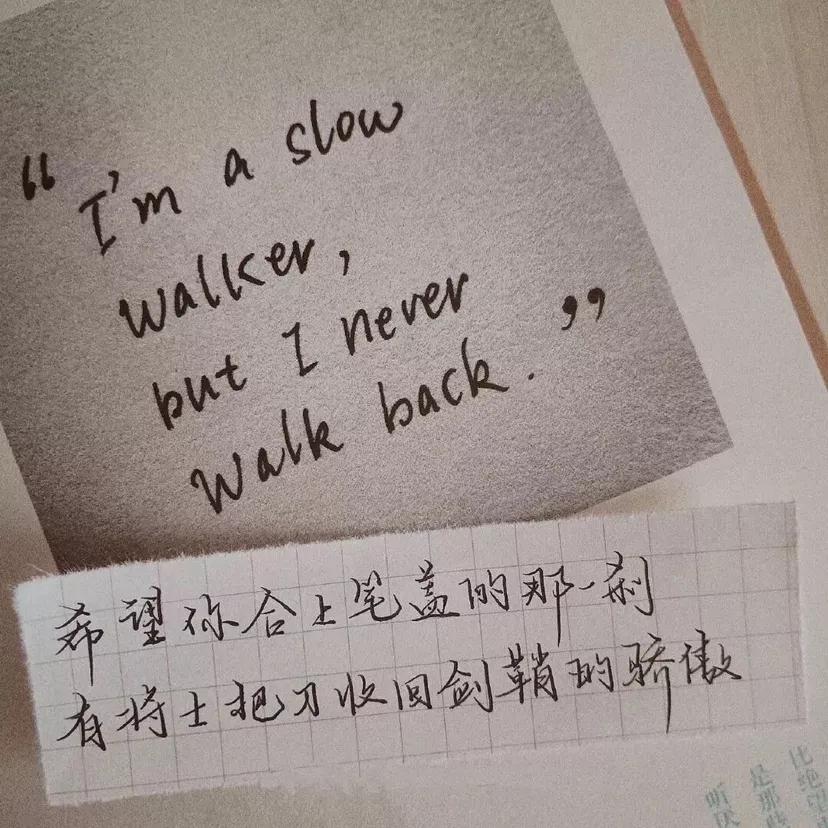 “I'm a slow
walker,
but I never
walk back.”
希望你合上笔盖的那一刹
有将士把刀收回剑鞘的骄傲